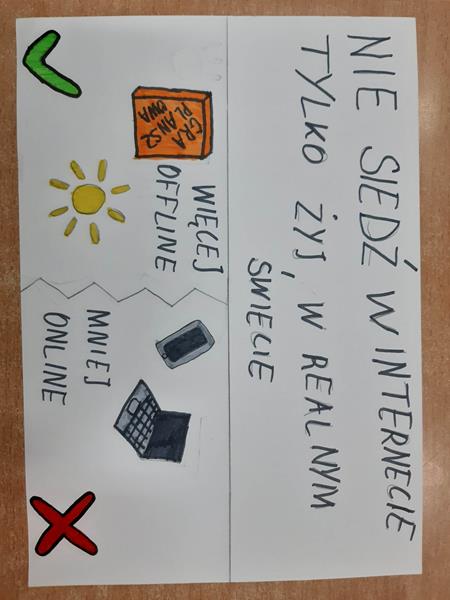 NIE SIEDŹ W INTERNECIE
TYLKO ŻYJ W REALNYM
ŚWIECIE
GRA
PLANSZ
OWA
WIĘCEJ
OFFLINE
MNIEJ
ONLINE